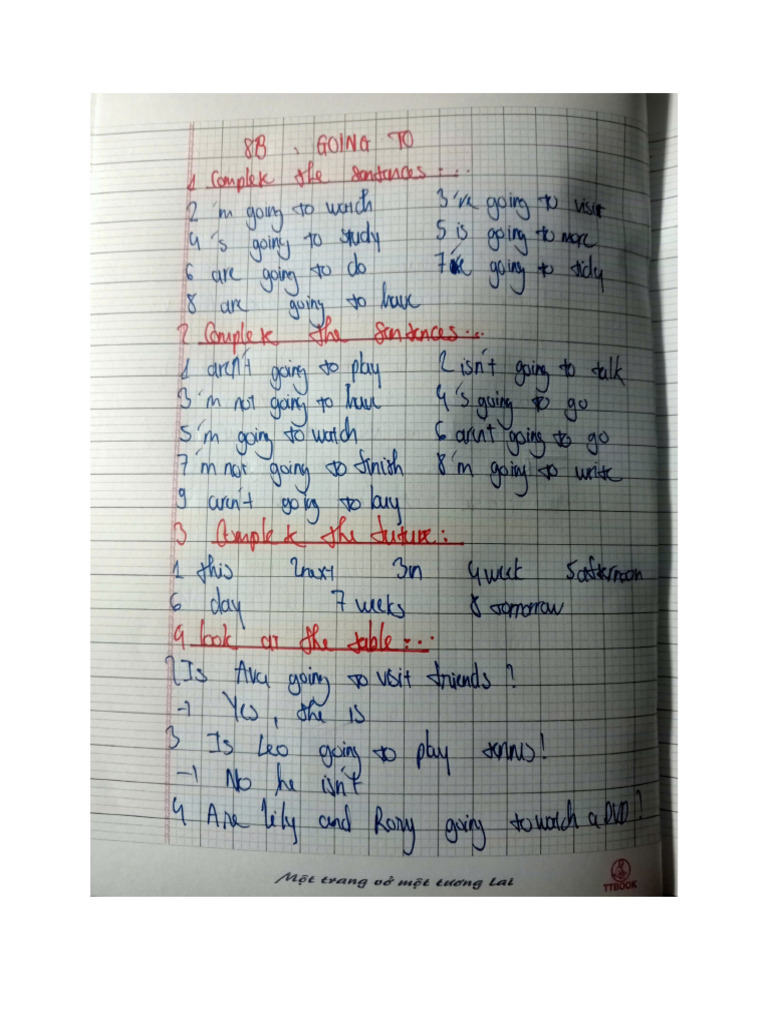 8B. GOING TO
1 Complete the sentences...
2 'm going to watch 3 're going to visit
4 's going to study 5 is going to more
6 are going to do 7 're going to tidy
8 are going to have
2 Complete the sentences...
1 aren't going to play 2 isn't going to talk
3 'm not going to have 4 's going to go
5 'm going to watch 6 aren't going to go
7 'm not going to finish 8 'm going to write
9 aren't going to buy
3 Complete the future:
1 this 2 next 3 in 4 week 5 afternoon
6 day 7 weeks 8 tomorrow
4 look at the table:...
2 Is Ava going to visit friends?
Yes, she is
3 Is Leo going to play tennis!
No he isn't
4 Are Lily and Rory going to watch a DVD?
Một trang vở một tương lai
TTBOOK